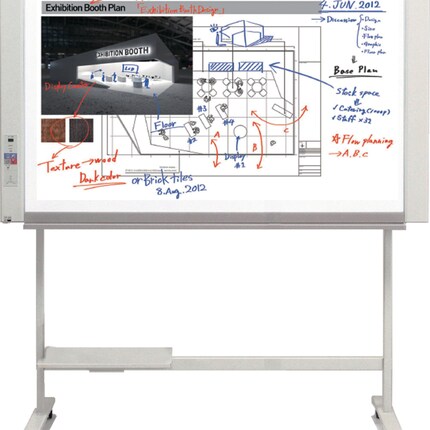 Exhibition Booth Plan
「Exhibition Booth Design」
4. JUN. 2012
→Discussion
・Design
・Size
・Floor plan
・Graphic
・Floor plan
↓
Base Plan
EXHIBITION BOOTH
Stock space
✓Catering (2000)
✓Staff ×32
☆Flow planning
→A, B, C
#3
#4
#2
Floor
A
B
C
Display
#1
Texture→wood
Dark color
or Brick tiles
8. Aug. 2012